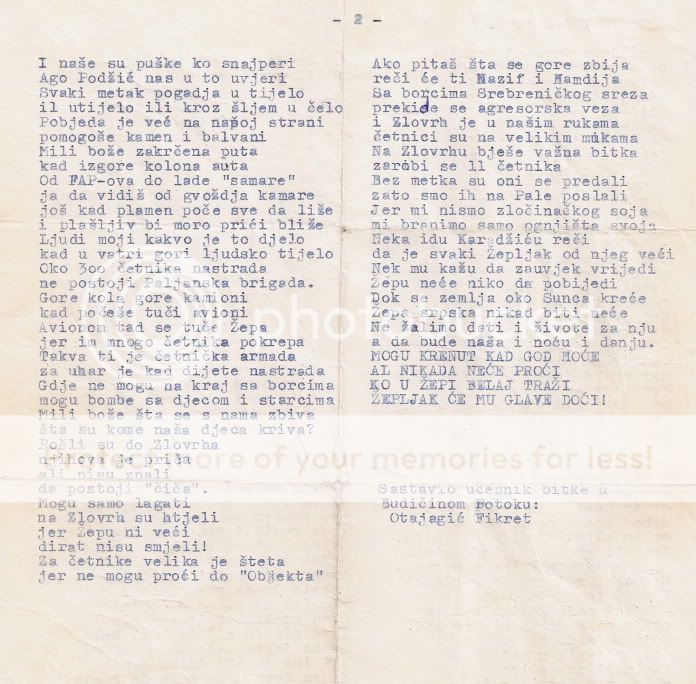 - 2 -
I naše su puške ko snajperi
Ago Podžić nas u to uvjeri
Svaki metak pogadja u tijelo
il utijelo ili kroz šljem u čelo
Pobjeda je već na našoj strani
pomogoše kamen i balvani
Mili bože zakrčena puta
kad izgore kolona auta
Od FAP-ova do lade "samare"
ja da vidiš od gvoždja kamare
još kad plamen poče sve da liže
i plašljiv bi moro prići bliže
Ljudi moji kakvo je to djelo
kad u vatri gori ljudsko tijelo
Oko 300 četnika nastrada
ne postoji Paljanska brigada.
Gore kola gore kamioni
kad počeše tuči avioni
Avionom tad se tuče Žepa
jer im mnogo četnika pokrepa
Takva ti je četnička armada
za uhar je kad dijete nastrada
Gdje ne mogu na kraj sa borcima
mogu bombe sa djecom i starcima
Mili bože šta se s nama zbiva
šta su kome naša djeca kriva?
Pošli su do Zlovrha
njihova je priča
ali nisu znali
da postoji "čiča".
Mogu samo lagati
na Zlovrh su htjeli
jer Žepu ni veći
dirat nisu smjeli!
Za četnike velika je šteta
jer ne mogu proći do "Objekta"
Ako pitaš šta se gore zbija
reči će ti Nazif i Hamdija
Sa borcima Srebreničkog sreza
prekide se agresorska veza
i Zlovrh je u našim rukama
četnici su na velikim mukama
Na Zlovrhu bješe važna bitka
zarobi se 11 četnika
Bez metka su oni se predali
zato smo ih na Pale poslali
Jer mi nismo zločinačkog soja
mi branimo samo ognjišta svoja
Neka idu Karadžiću reči
da je svaki Žepljak od njeg veći
Nek mu kažu da zauvjek vrijedi
Žepu neće niko da pobijedi
Dok se zemlja oko Sunca kreće
Žepa srpska nikad biti neće
Ne žalimo dati i živote za nju
a da bude naša i noću i danju.
MOGU KRENUT KAD GOD HOĆE
AL NIKADA NEĆE PROĆI
KO U ŽEPI BELAJ TRAŽI
ŽEPLJAK ĆE MU GLAVE DOĆI!
Sastavio učesnik bitke u
Budičinom Potoku:
Otajagić Fikret
photobucket
of your memories for less!